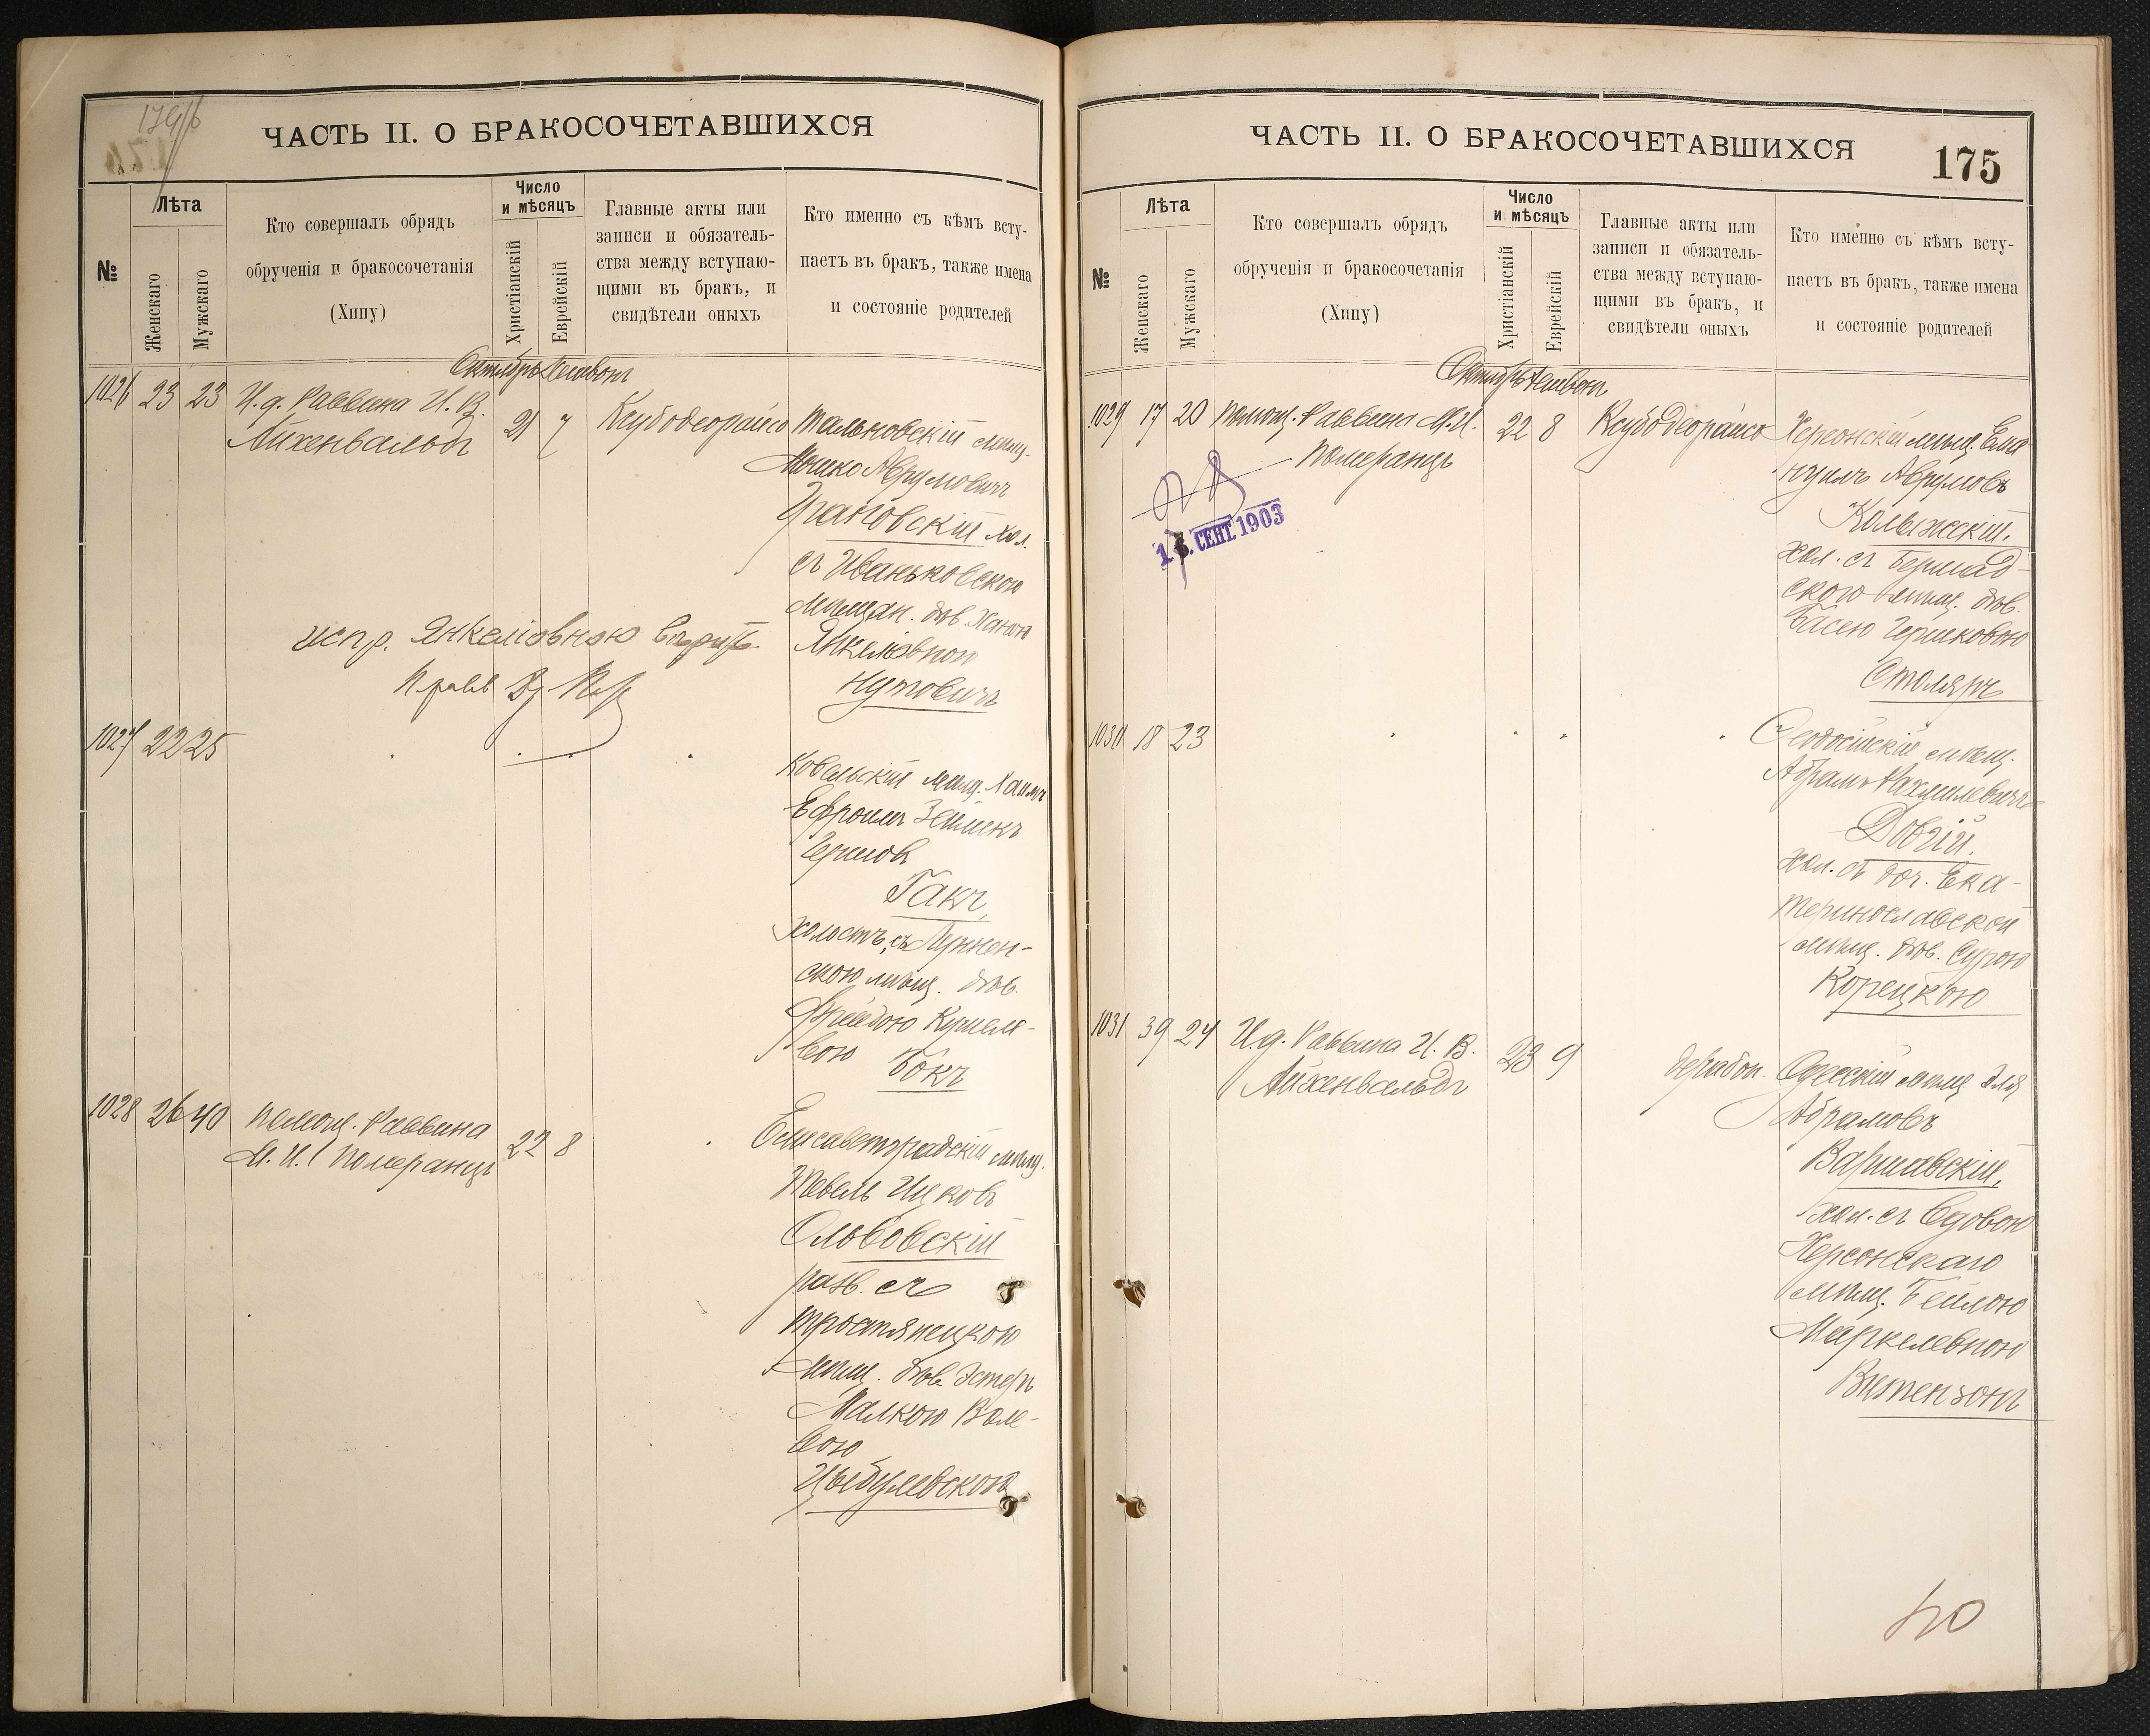 179/б
ЧАСТЬ II. О БРАКОСОЧЕТАВШИХСЯ
№
Лѣта
Женскаго
Мужскаго
Кто совершалъ обрядъ
обрученія и бракосочетанія
(Хипу)
Число
и мѣсяцъ
Христіанскій
Еврейскій
Главные акты или
записи и обязатель-
ства между вступаю-
щими въ бракъ, и
свидѣтели оныхъ
Кто именно съ кѣмъ всту-
паетъ въ бракъ, также имена
и состояніе родителей
Октябрь Хешвонъ
1026 23 23 И. д. Раввина И. В.
Айхенвальдъ
21 7
Ксубодеорайсо
Тальновскій мѣщ.
Мошко Аврумовичъ
Грановскій хол.
съ Иваньковскою
мѣщан. дѣв. Ханою
Янкелевною
Нутовичъ
испр. Янкеліовною
1027 22 25
Ковальскій мѣщ. Хаимъ
Ефроимъ Зейликъ
Гершовъ
Гакъ,
холостъ, съ Луннен-
скою мѣщ. дѣв.
Фрейдою Куселе-
вою Бокъ
1028 26 40 Помощ. Раввина
М. И. Померанцъ
22 8
Елисаветградскій мѣщ.
Тевель Ицковъ
Ольвовскій
разв. съ
Тростянецкою
мѣщ. дѣв. Эстеръ
Малкою Воле-
вою
Цыбулевскою
ЧАСТЬ II. О БРАКОСОЧЕТАВШИХСЯ
175
№
Лѣта
Женскаго
Мужскаго
Кто совершалъ обрядъ
обрученія и бракосочетанія
(Хипу)
Число
и мѣсяцъ
Христіанскій
Еврейскій
Главные акты или
записи и обязатель-
ства между вступаю-
щими въ бракъ, и
свидѣтели оныхъ
Кто именно съ кѣмъ всту-
паетъ въ бракъ, также имена
и состояніе родителей
Октябрь Хешвонъ
1029 17 20 Помощ. Раввина М. И.
Померанцъ
22 8
Ксубодеорайсо
СЕНТ. 1903
Херсонскій мѣщ. Ема-
нуилъ Аврумовъ
Колыжскій,
хол. съ Бершад-
скою мѣщ. дѣв.
Басею Гершковою
Столяръ
1030 18 23
Феодосійскій мѣщ.
Абрамъ Рахмилевичъ
Довгій.
хол. съ доч. Ека-
теринославской
мѣщ. дѣв. Сурою
Корецкою
1031 39 24 И. д. Раввина И. В.
Айхенвальдъ
23 9
Дерабон.
Одесскій мѣщ. Эля
Абрамовъ
Варшавскій,
хол. съ вдовою
Херсонскаго
мѣщ. Бейлою
Маркелевною
Витензонъ
40